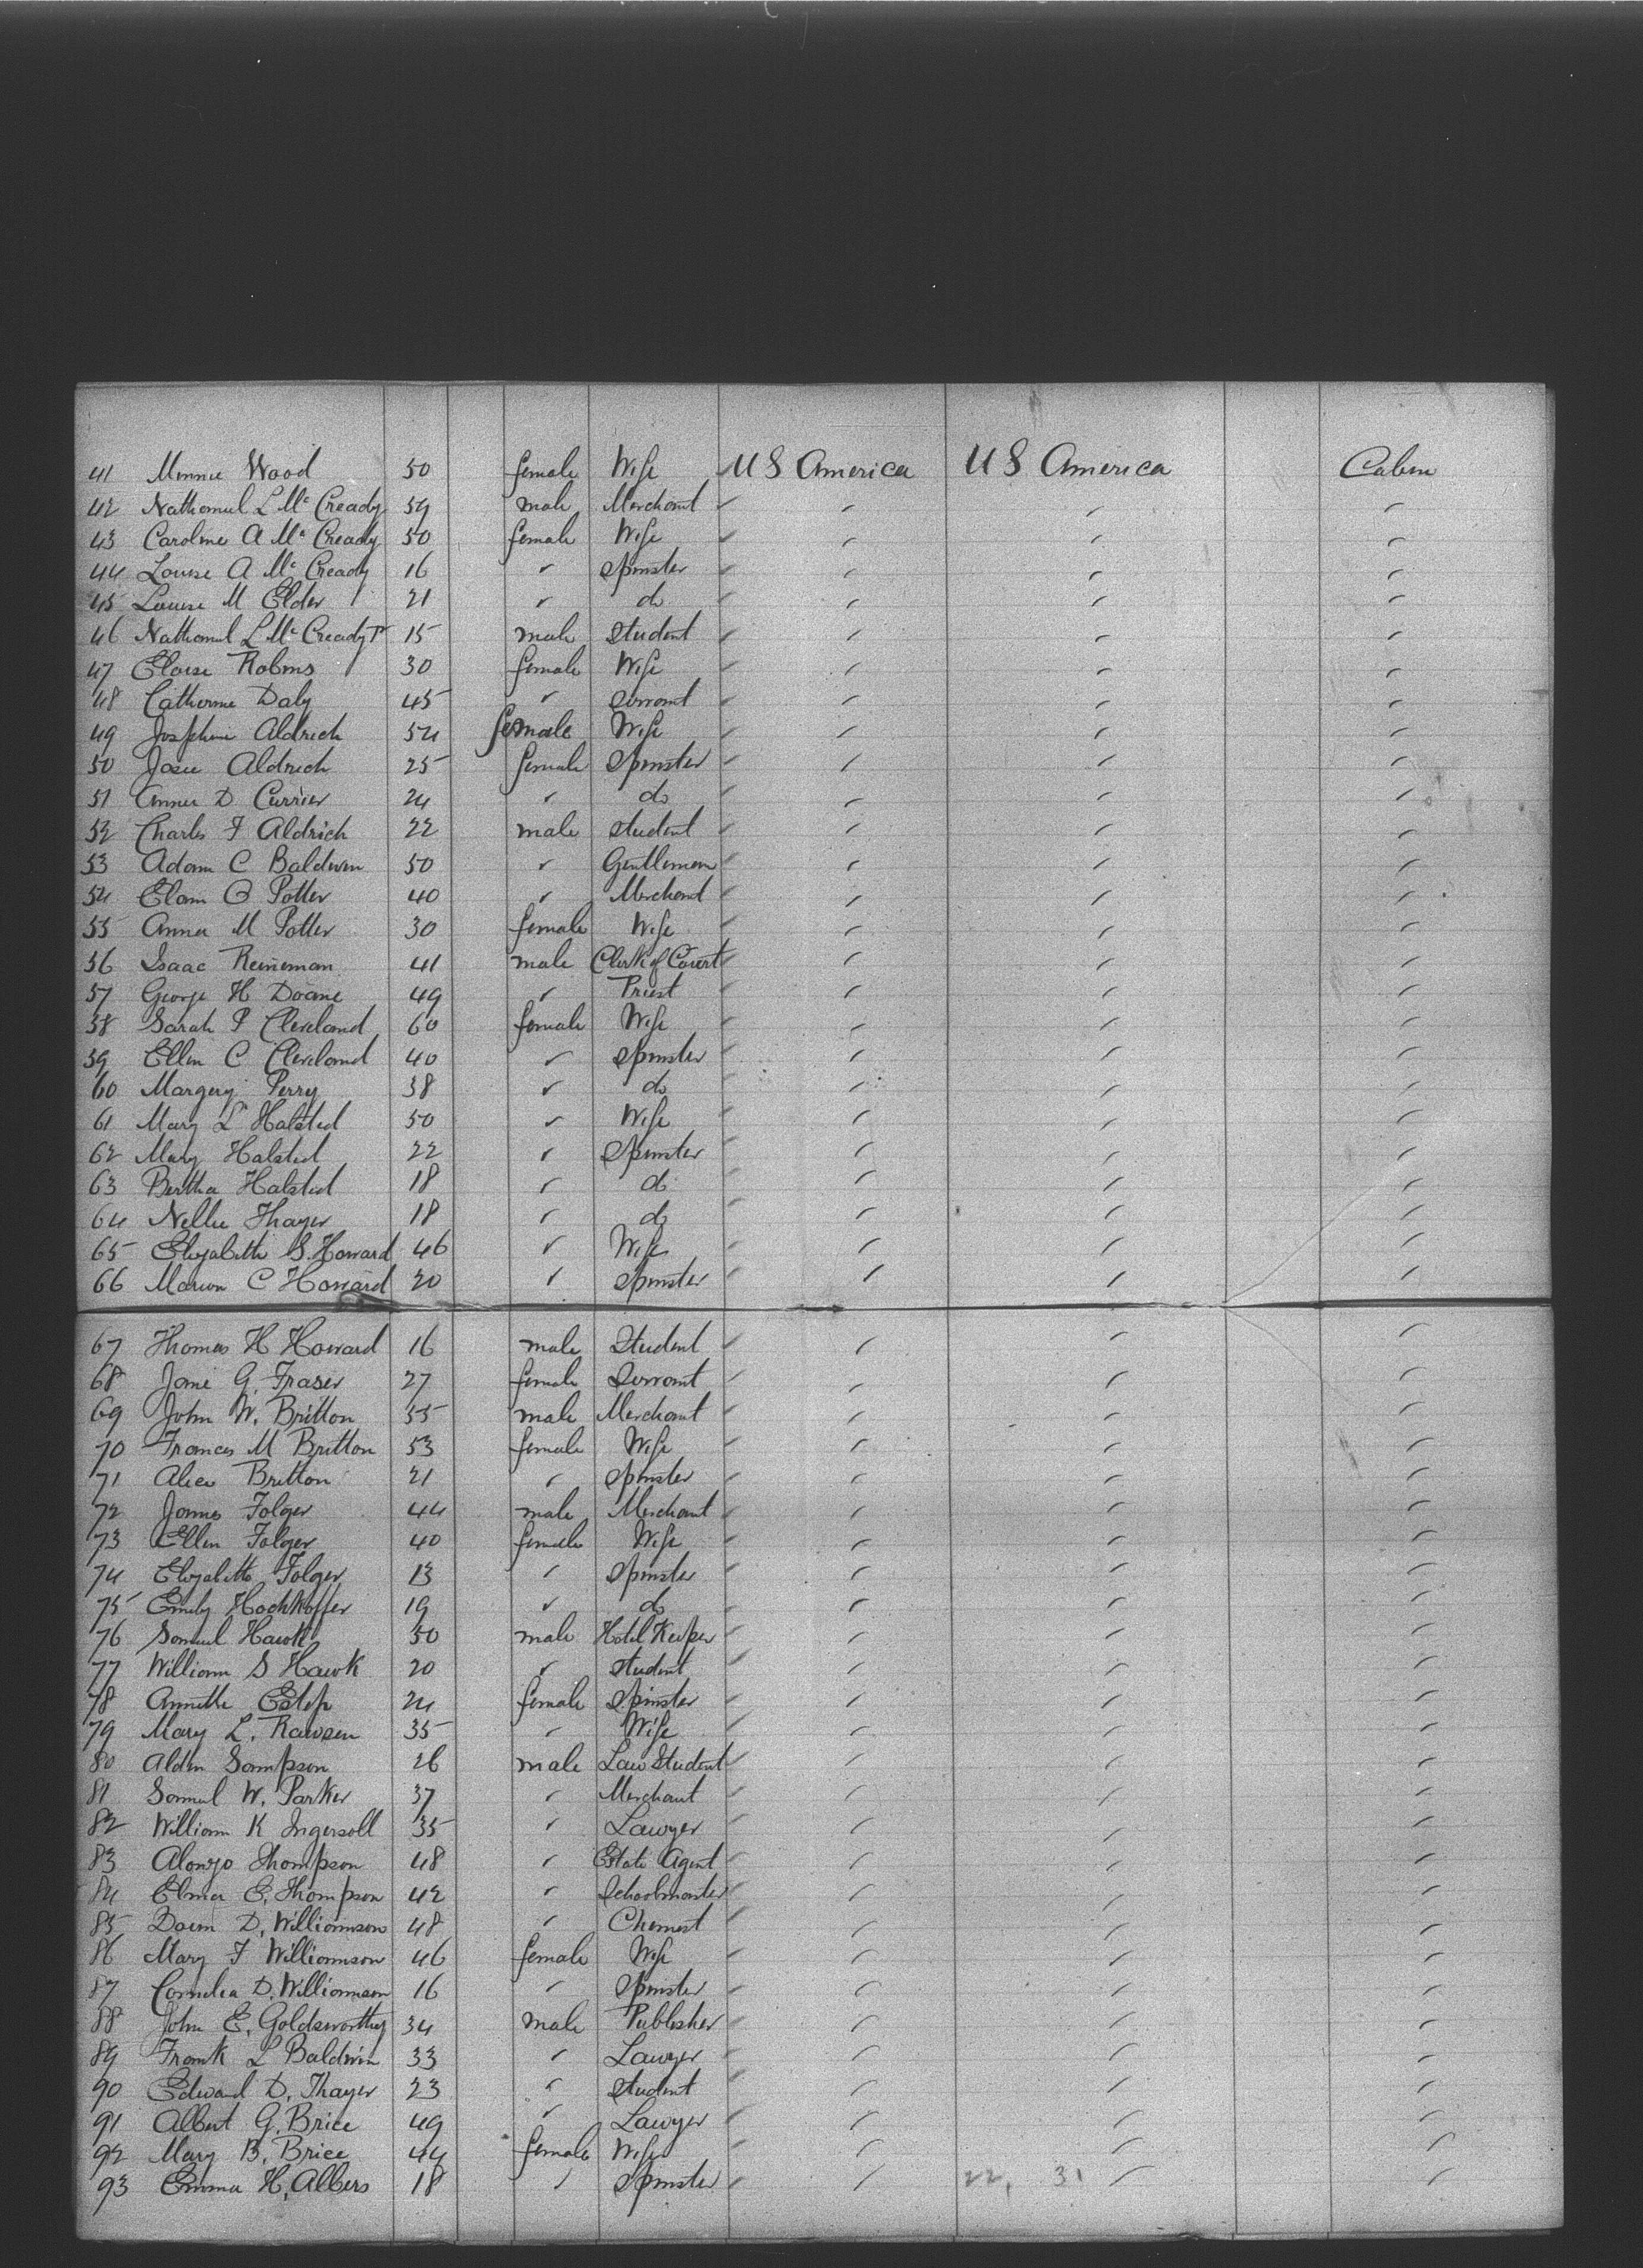 41 Minnie Wood 50 female Wife U S America U S America Cabin
42 Nathaniel L Mc Cready 59 male Merchant " " " "
43 Caroline A Mc Cready 50 female Wife " " " "
44 Louise A Mc Cready 16 " Spinster " " " "
45 Louise M Elder 21 " do " " " "
46 Nathaniel L Mc Cready Jr 15 male Student " " " "
47 Eloise Robins 30 female Wife " " " "
48 Catherine Daly 45 " Servant " " " "
49 Josephine Aldrich 54 female Wife " " " "
50 Josie Aldrich 25 female Spinster " " " "
51 Anna D Currier 24 " do " " " "
52 Charles F Aldrich 22 male Student " " " "
53 Adam C Baldwin 50 " Gentleman " " " "
54 Elam O Potter 40 " Merchant " " " "
55 Anna M Potter 30 female Wife " " " "
56 Isaac Reineman 41 male Clerk of Court " " " "
57 George H Doane 49 " Priest " " " "
58 Sarah P Cleveland 60 female Wife " " " "
59 Ellen C Cleveland 40 " Spinster " " " "
60 Margery Perry 38 " do " " " "
61 Mary L Halsted 50 " Wife " " " "
62 Mary Halsted 22 " Spinster " " " "
63 Bertha Halsted 18 " do " " " "
64 Nellie Thayer 18 " do " " " "
65 Elizabeth S. Howard 46 " Wife " " " "
66 Marion C Howard 20 " Spinster " " " "
67 Thomas H Howard 16 male Student " " " "
68 Jane G. Fraser 27 female Servant " " " "
69 John W. Britton 55 male Merchant " " " "
70 Frances M Britton 53 female Wife " " " "
71 Alice Britton 21 " Spinster " " " "
72 James Folger 44 male Merchant " " " "
73 Ellen Folger 40 female Wife " " " "
74 Elizabeth Folger 13 " Spinster " " " "
75 Emily Hochkoffer 19 " do " " " "
76 Samuel Hawk 50 male Hotel Keeper " " " "
77 William S Hawk 20 " Student " " " "
78 Annette Estep 24 female Spinster " " " "
79 Mary L. Rawson 35 " Wife " " " "
80 Alden Sampson 26 male Law Student " " " "
81 Samuel W. Parker 37 " Merchant " " " "
82 William K Ingersoll 35 " Lawyer " " " "
83 Alonzo Thompson 48 " Estate Agent " " " "
84 Elmer E. Thompson 42 " Schoolmaster " " " "
85 D. Williamson 48 " Chemist " " " "
86 Mary F Williamson 46 female Wife " " " "
87 Cornelia D. Williamson 16 " Spinster " " " "
88 John E. Goldsworthy 34 male Publisher " " " "
89 Frank L Baldwin 33 " Lawyer " " " "
90 Edward D. Thayer 23 " Student " " " "
91 Albert G. Brice 49 " Lawyer " " " "
92 Mary B. Brice 44 female Wife " " " "
93 Emma H. Albers 18 " Spinster " " 22, 31 " "